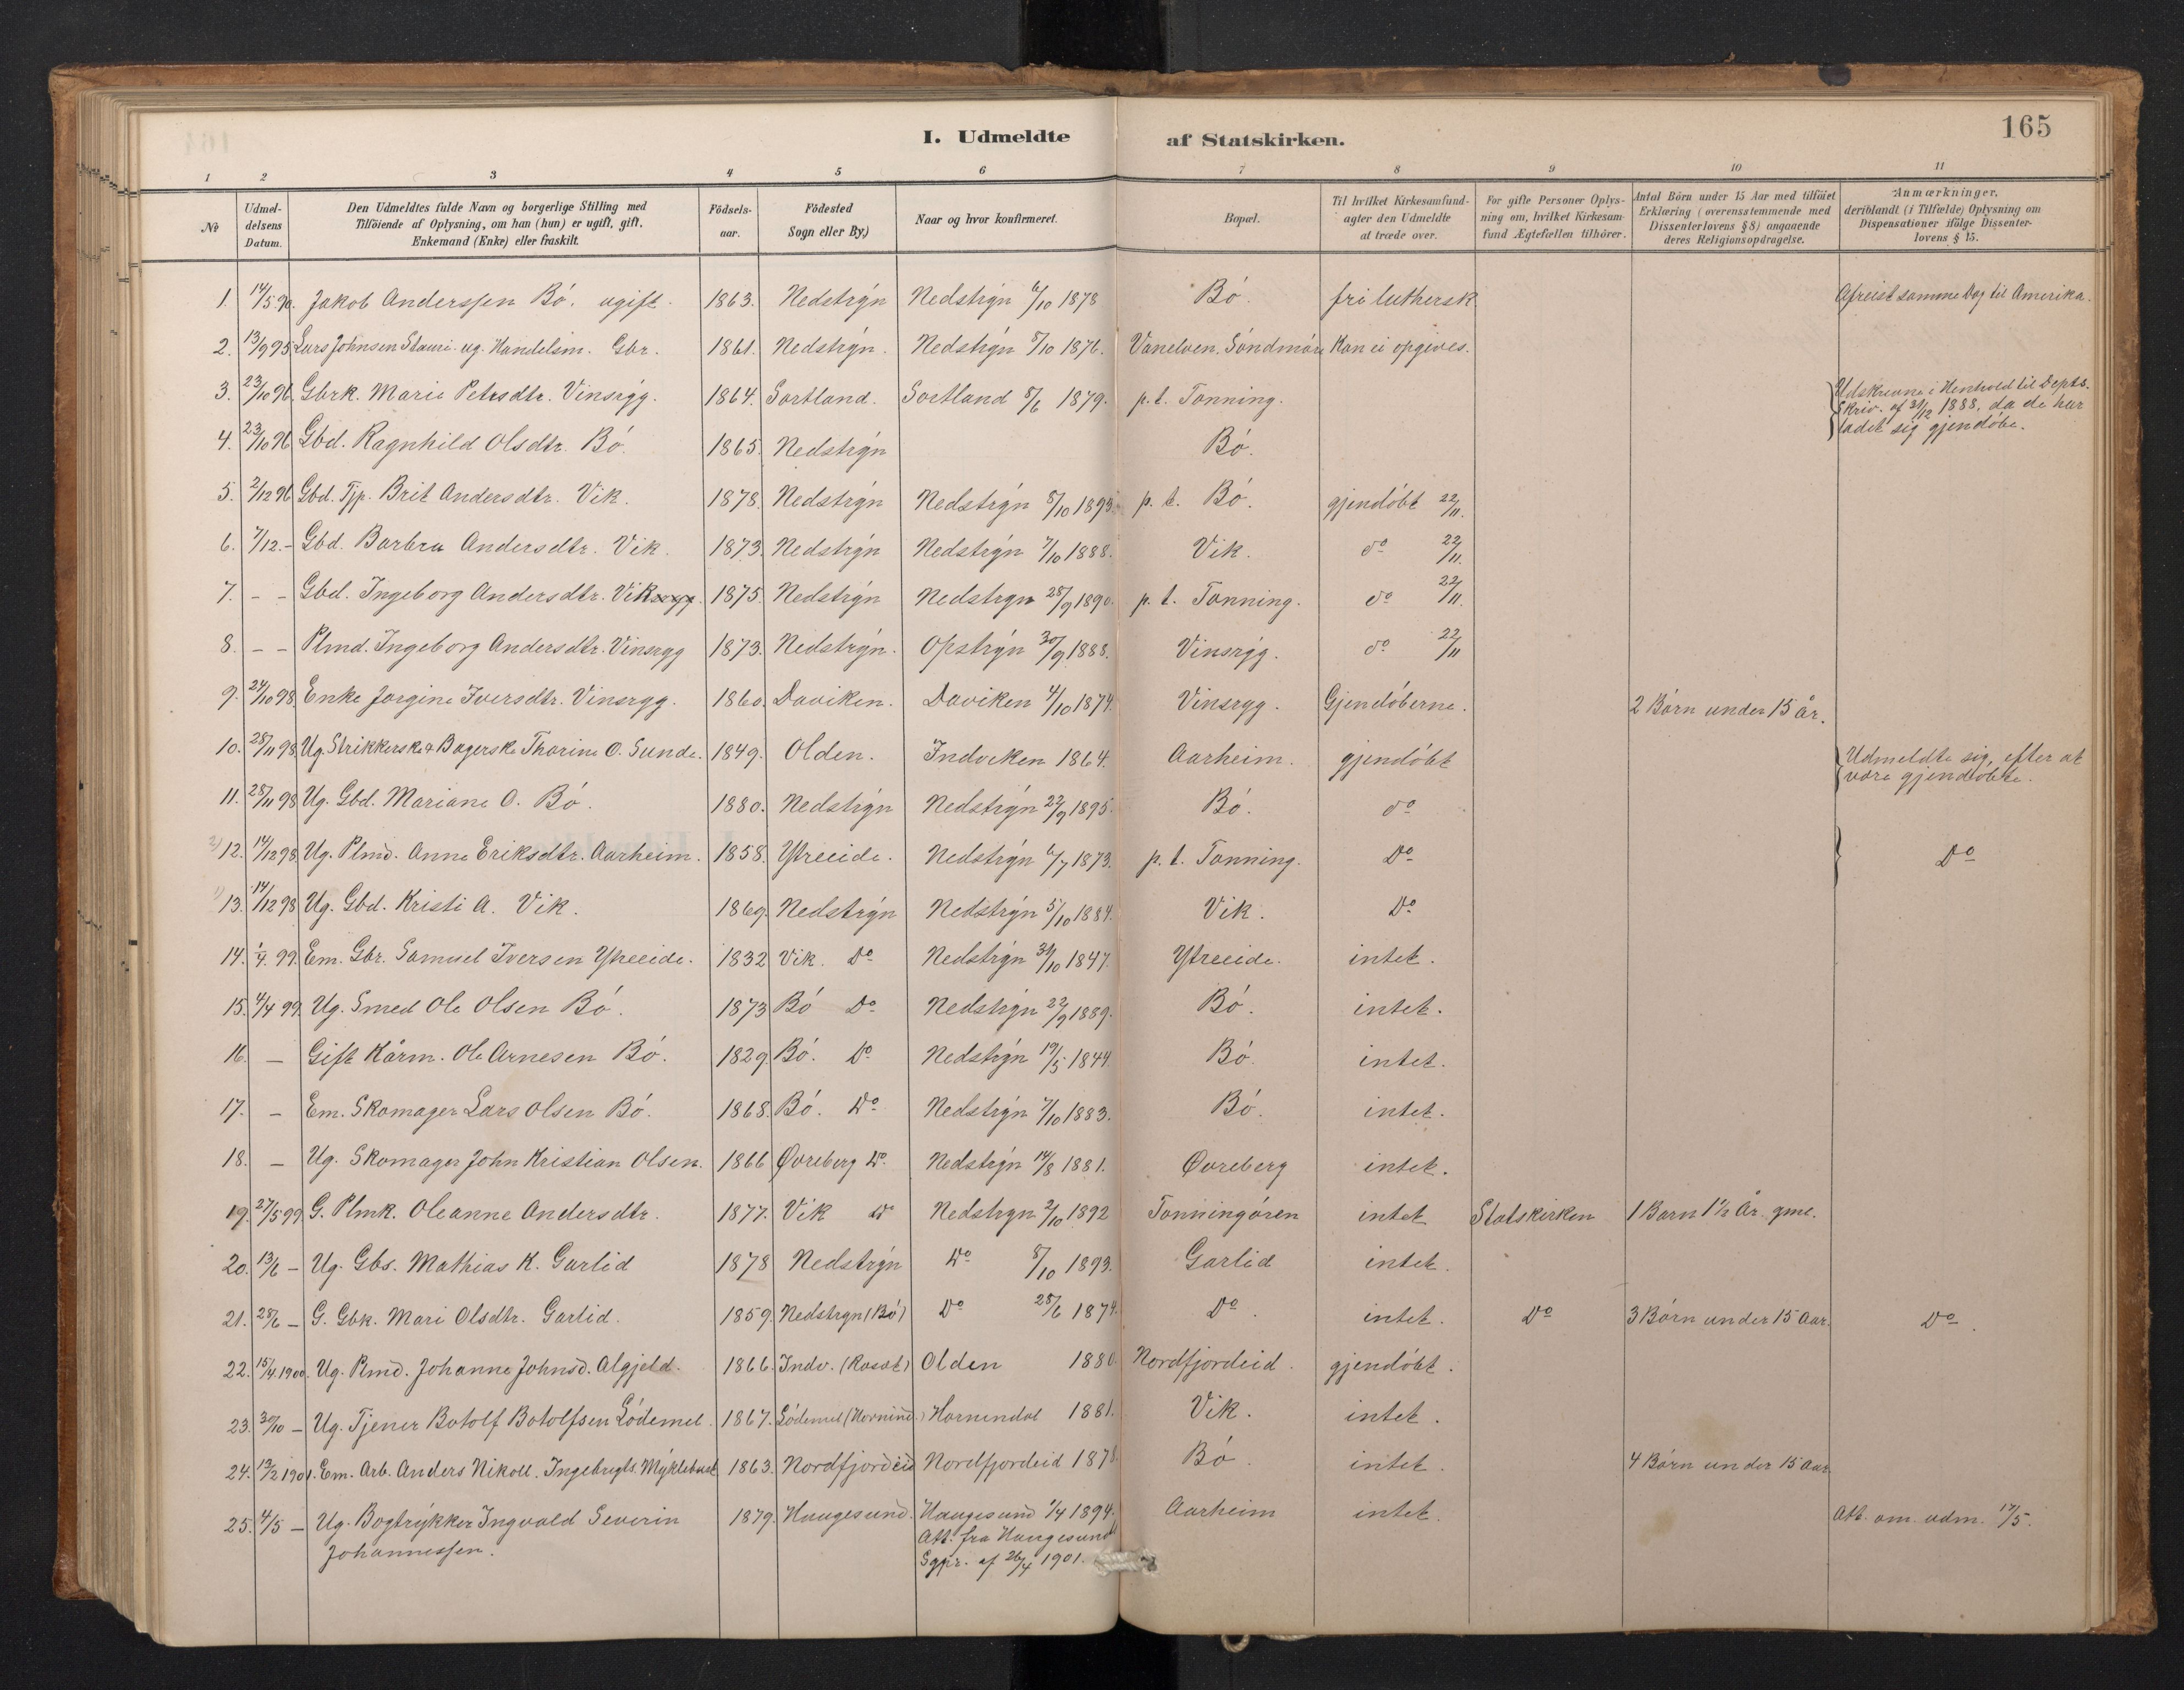 165
I. Udmeldte af Statskirken.
1 2 3 4 5 6 7 8 9 10 11
No
Udmel-
delsens
Datum.
Den Udmeldtes fulde Navn og borgerlige Stilling med
Tilföiende af Oplysning, om han (hun) er ugift, gift,
Enkemand (Enke) eller fraskilt.
Födsels-
aar.
Födested
Sogn eller By.)
Naar og hvor konfirmeret.
Bopæl.
Til hvilket Kirkesamfund-
agter den Udmeldte
at træde over.
For gifte Personer Oplys-
ning om, hvilket Kirkesam-
fund Ægtefællen tilhörer.
Antal Börn under 15 Aar med tilföiet
Erklæring (overensstemmende med
Dissenterlovens § 8) angaaende
deres Religionsopdragelse.
Anmærkninger,
deriblandt (i Tilfælde) Oplysning om
Dispensationer ifölge Dissenter-
lovens § 15.
1. 14/5 90. Jakob Anderssen Bó. ugift. 1863. Nedstrýn Nedstrýn 6/10 1878 Bó. fri luthersk Afreist samme Dag til Amerika.
2. 13/9 95 Lars Johnsen Stauri. ug. Handelsm. Gbr. 1861. Nedstrýn. Nedstrýn 8/10 1876. Vanelven. Sóndmóre Kan ei opgives.
3. 23/10 96. Gbrk. Marie Petersdtr. Vinsrýg. 1864. Sortland. Sortland 8/6 1879. p. t. Tonning. Udskrevne i Henhold til Depts.
Skriv. af 31/12 1888, da de har
ladet sig gjendóbe.
4. 23/10 96 Gbd. Ragnhild Olsdtr. Bó. 1865. Nedstrýn Bó.
5. 2/12 96 Gbd. Tjp. Brit Andersdtr. Vik. 1878. Nedstrýn Nedstrýn 8/10 1893. p. t. Bó. gjendóbt 22/11.
6. 7/12 - Gbd. Barbra Andersdtr. Vik. 1873. Nedstrýn Nedstrýn 7/10 1888. Vik. do 22/11.
7. - - Gbd. Ingeborg Andersdtr. Vik 1875. Nedstrýn Nedstrýn 28/9 1890. p. t. Tonning. do 22/11.
8. - - Plmd. Ingeborg Andersdtr. Vinsryg 1873. Nedstrýn. Opstrýn 30/9 1888. Vinsrýg. do 22/11
9. 24/10 98 Enke Jorgine Iversdtr. Vinsryg. 1860. Daviken. Daviken 4/10 1874. Vinsryg. Gjendóberne. 2 Bórn under 15 år.
10. 28/11 98 Ug. Strikkerske & Bagerske Thorine O. Sunde. 1849. Olden. Indviken 1864. Aarheim. gjendóbt Udmeldte sig, efter at
være gjendóbte.
11. 28/11 98 Ug. Gbd. Mariane O. Bó. 1880. Nedstrýn Nedstrýn 22/9 1895. Bó. do
12. 14/12 98. Ug. Plmd. Anne Eriksdtr. Aarheim. 1858. Ytreeide. Nedstrýn 6/7 1873. p. t. Tonning. Do Do
13. 14/12 98 Ug. Gbd. Kristi A. Vik. 1869. Nedstrýn Nedstrýn 5/10 1884. Vik. Do
14. 1/4. 99. Em. Gbr. Samuel Iversen Ytreeide. 1832 Vik. Do Nedstrýn 31/10 1847. Ytreeide. intet.
15. 4/4 99. Ug. Smed Ole Olsen Bó. 1873 Bó Do Nedstrýn 22/9 1889. Bó. intet.
16. - Gift Kårm. Ole Arnesen Bó. 1829. Bó. Do Nedstrýn 19/5 1844. Bó. intet.
17. - Em. Skomager Lars Olsen Bó. 1868. Bó. Do Nedstrýn 7/10 1883. Bó. intet.
18. - Ug. Skomager John Kristian Olsen. 1866 Øvreberg Do Nedstrýn 14/8 1881. Øvreberg intet.
19. 27/5 99. G. Plmk. Oleanne Andersdtr. 1877. Vik Do Nedstryn 2/10 1892 Tonningóren intet Statskirken 1 Barn 1 1/2 År gml.
20. 13/6 - Ug. Gbs. Mathias K. Garlid 1878 Nedstrýn Do 8/10 1893. Garlid intet.
21. 28/6 - G. Gbk. Mari Olsdtr. Garlid. 1859. Nedstryn (Bó) Do 28/6 1874. Do. intet. Do 3 Bórn under 15 Aar. Do.
22. 15/4. 1900. Ug. Plmd. Johanne Johnsd. Algjeld. 1866. Indv. (Roset) Olden 1880. Nordfjordeid. gjendóbt.
23. 30/10 - Ug. Tjener Botolf Botolfsen Lódemel. 1867. Lódemel (Hornind.) Hornindal 1881. Vik. intet.
24. 13/2 1901. Em. Arb. Anders Nikoll. Ingebrigts. Mýklebust 1863. Nordfjordeid Nordfjordeid 1878. Bó. intet. 4 Bórn under 15 Aar.
25. 4/5 - Ug. Bogtrýkker Ingvald Severin
Johannessen. 1879. Haugesund. Haugesund 1/4 1894.
Att. fra Haugesund
Sgpr. af 26/4 1901. Aarheim intet. Att. om udm. 17/5.